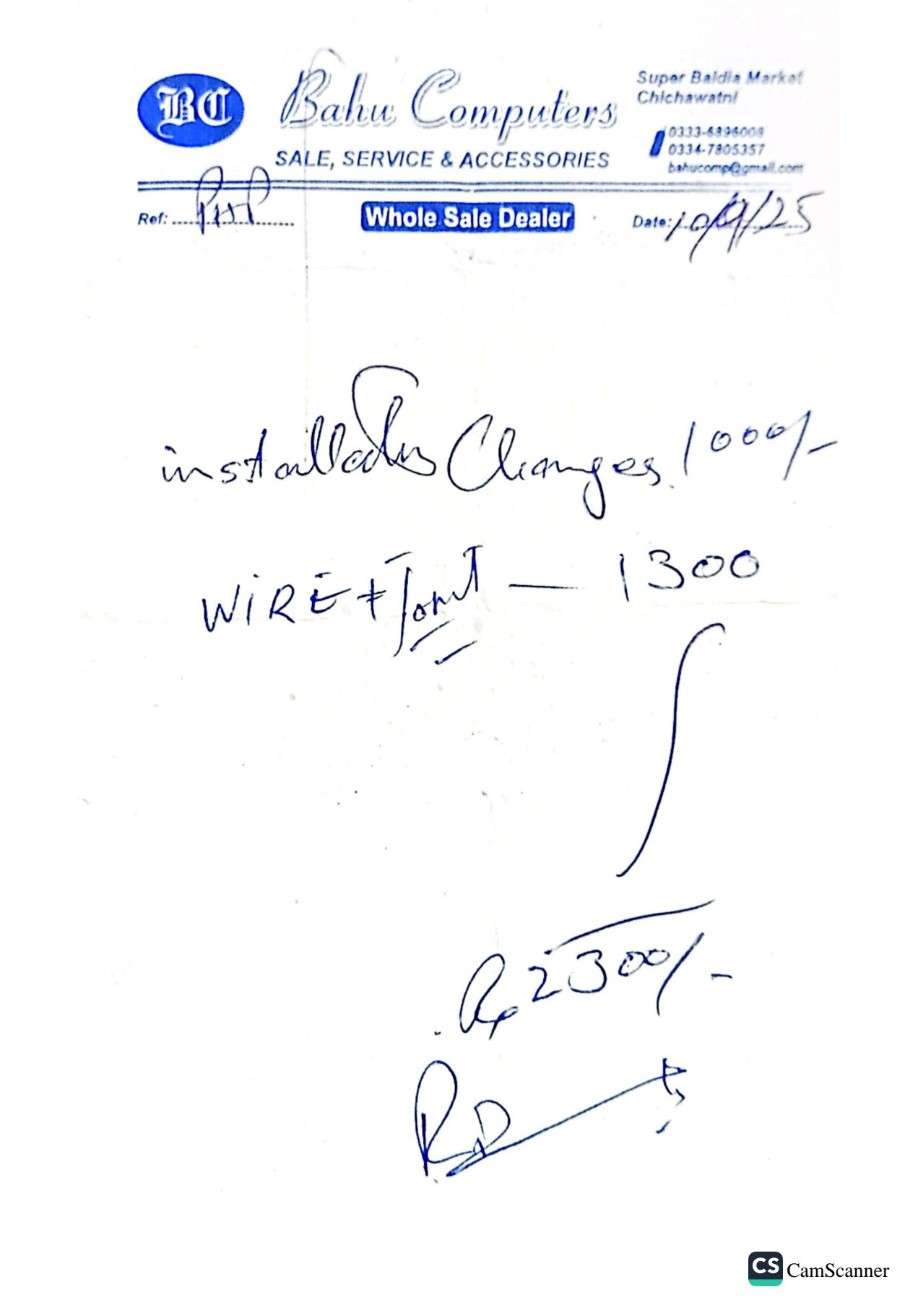 BC Bahu Computers
SALE, SERVICE & ACCESSORIES
Super Baldia Market
Chichawatni
0333-6896009
0334-7805357
bahucomp@gmail.com
Ref: PHP
Whole Sale Dealer
Date: 10/9/25
Charges 1000/-
WIRE + — 1300
Rs 2300/-
CS CamScanner